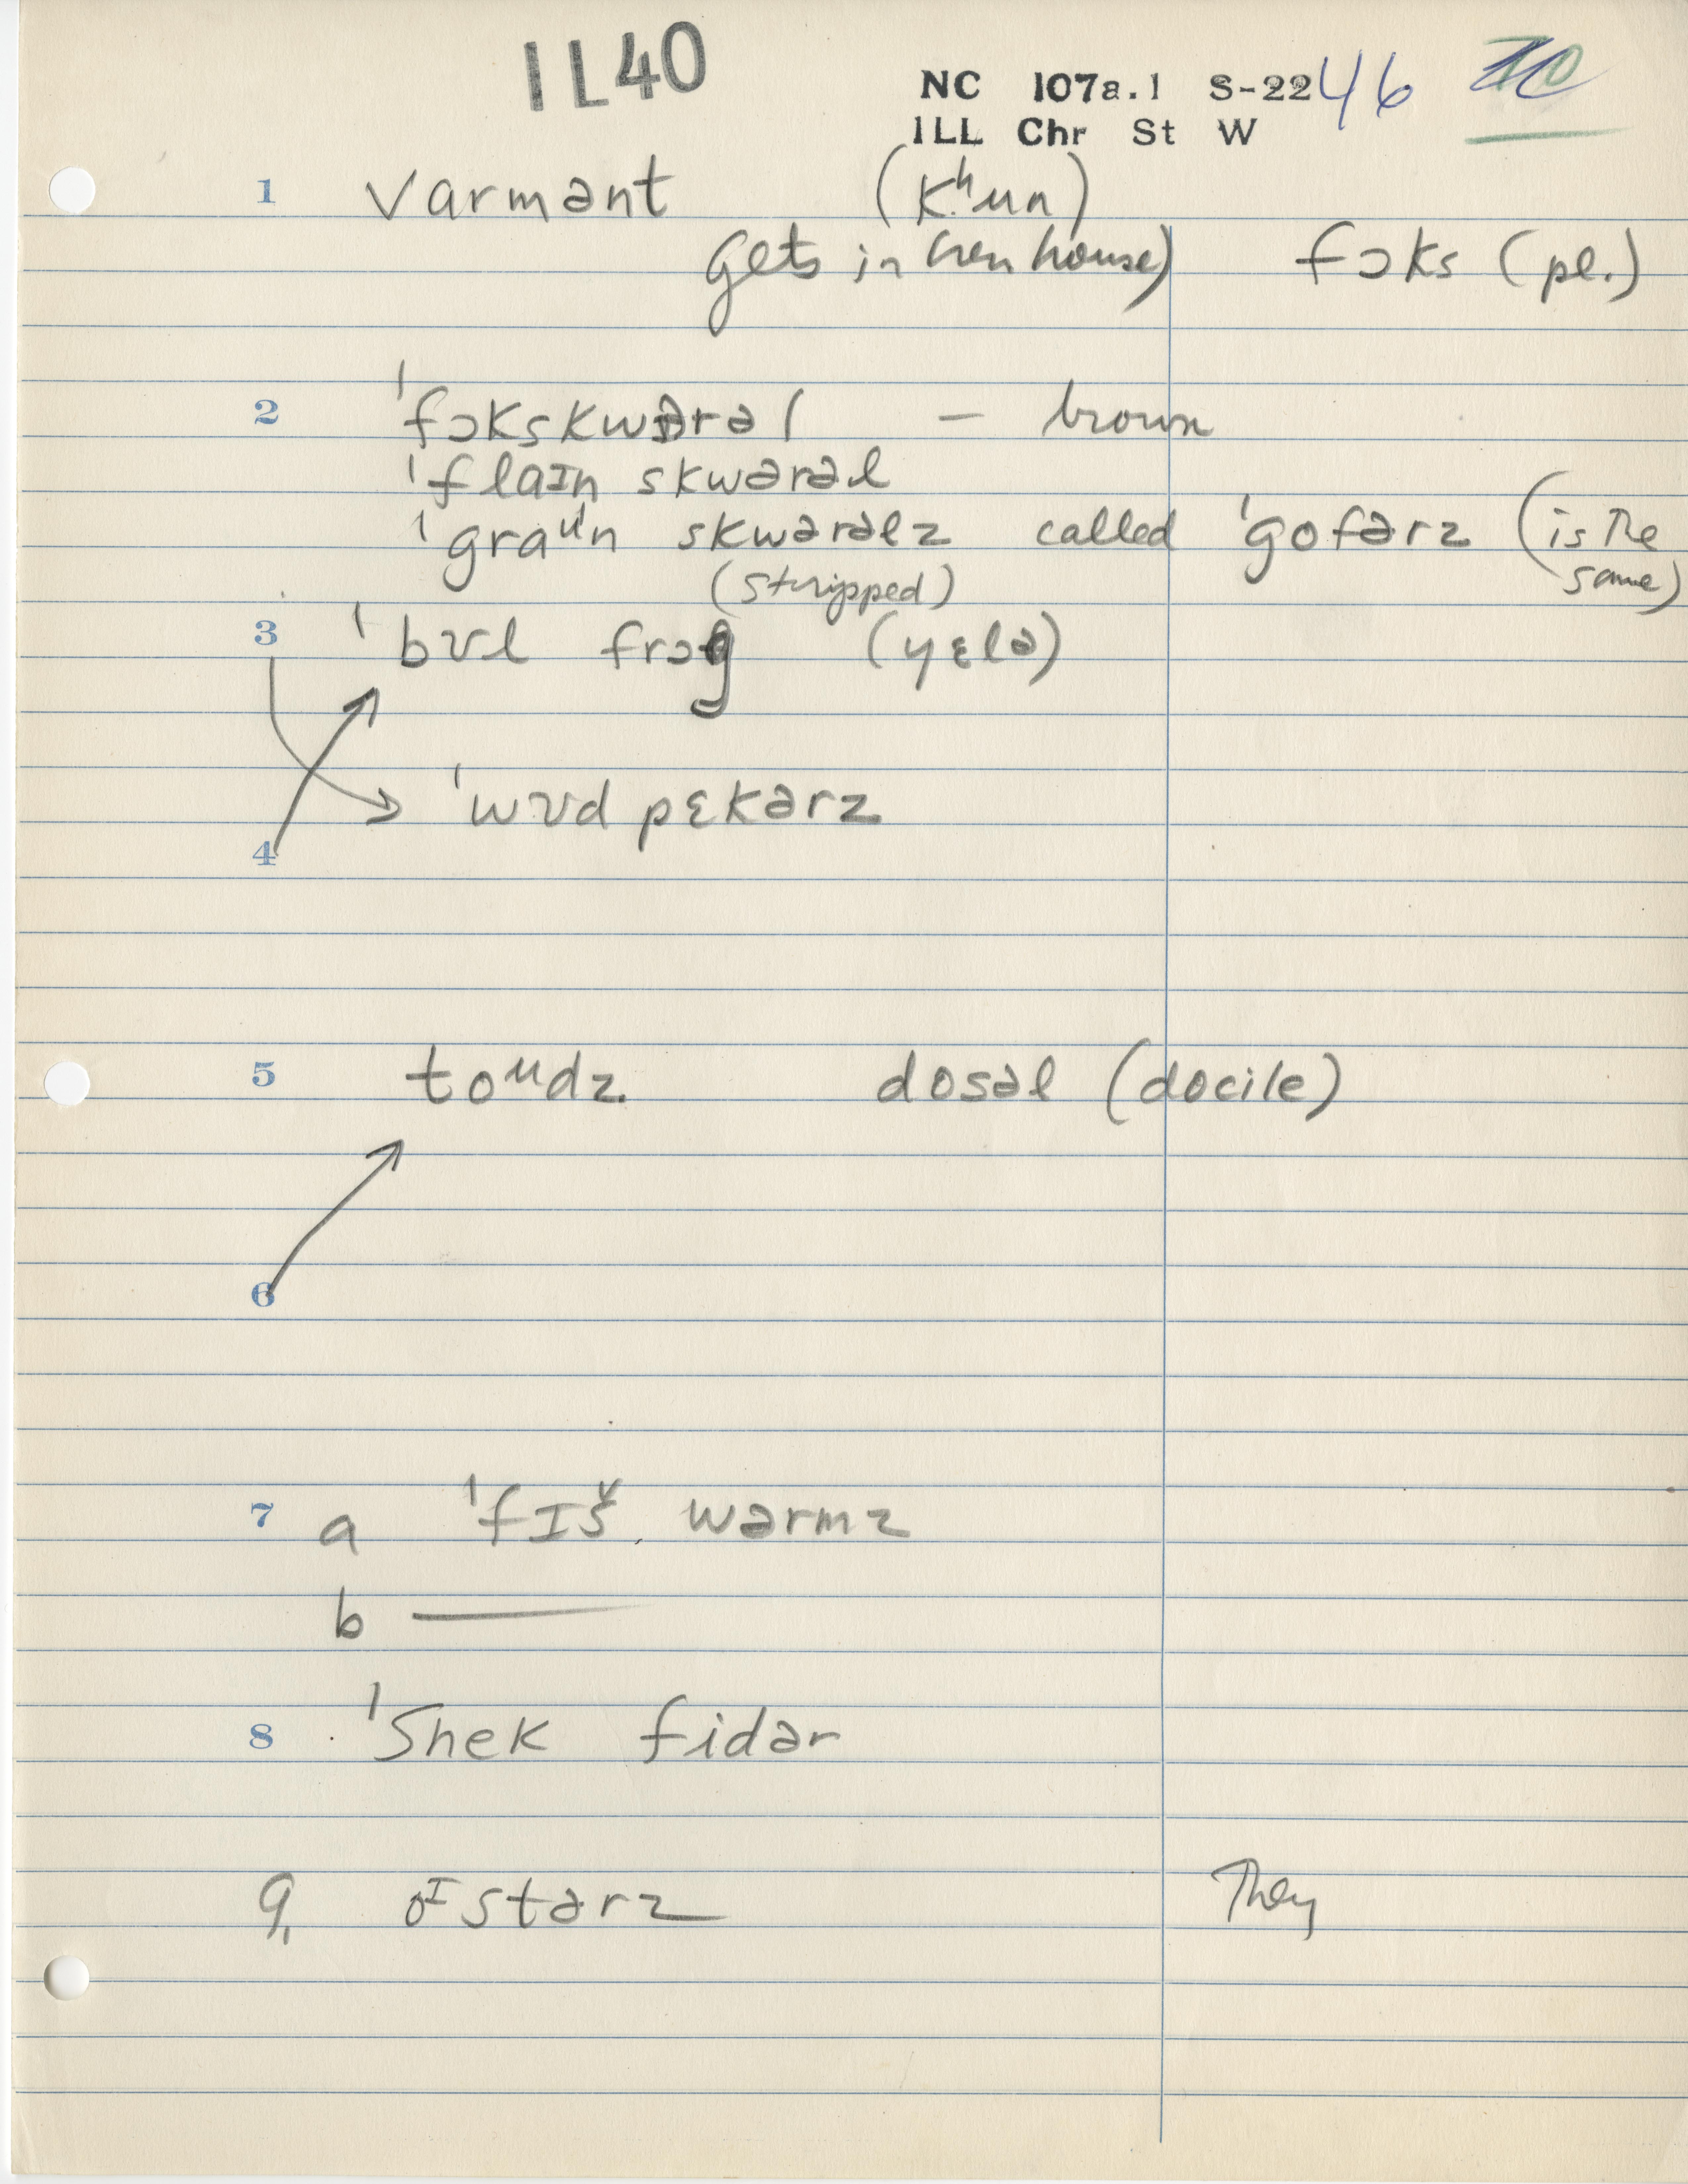 IL40
NC 107a.1 S-22 46
ILL Chr St W
1 varmənt (kʰun)
gets in hen house) fɔks (pl.)
2 ˈfɔkskwərəl – brown
ˈflaɪn skwərəl
ˈgraᵘn skwərəlz called ˈgofərz (is the
same)
(stripped)
3 ˈbʊl frɔg (yɛlə)
ˈwʊd pɛkərz
4
5 toᵘdz dosəl (docile)
6
7 a ˈfɪš wərmz
b —
8 ˈsnek fidər
9. oᴵstərz They